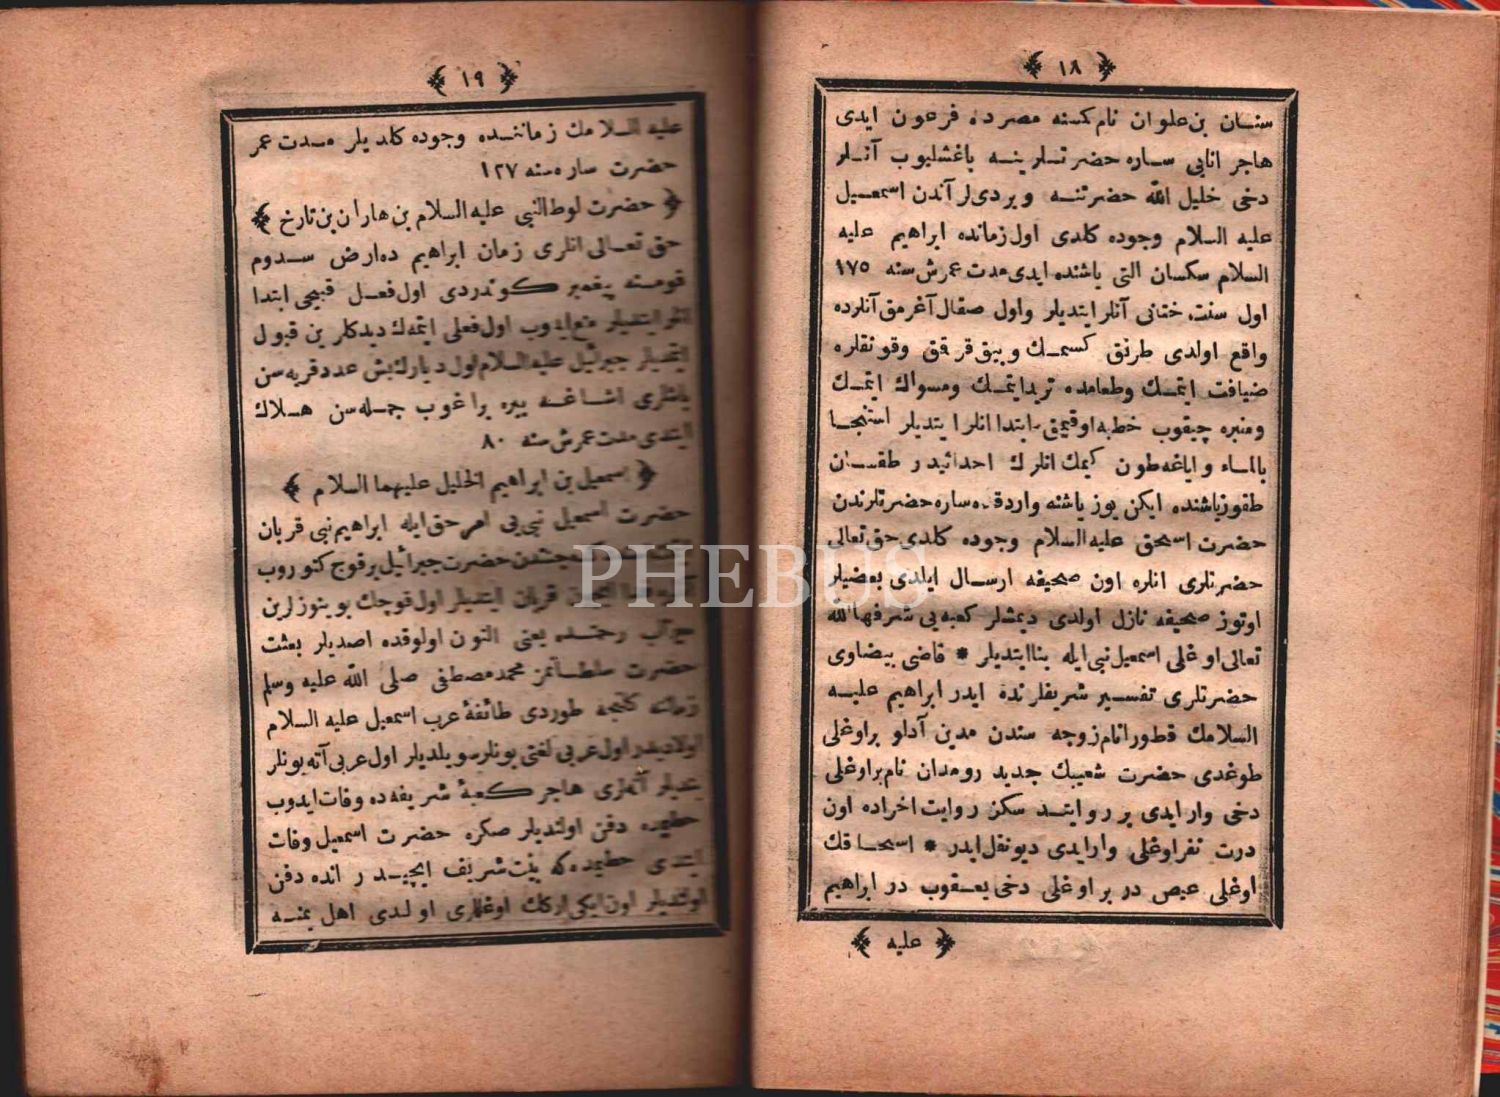 ﴿ ١٨ ﴾
سنان بن علوان نام كمسنه مصرده فرعون ايدى
هاجر انايى ساره حضرتلرينه باغشليوب آنلر
دخى خليل الله حضرتنه ويرديلر آندن اسمعيل
عليه السلام وجوده كلدى اول زمانده ابراهيم عليه
السلام سكسان التى ياشنده ايدى مدت عمرش سنه ١٧٥
اول سنت ختانى آنلر ايتديلر واول صقال آغرمق آنلرده
واقع اولدى طرنق كسمك وبيق قرقق وقونقلره
ضيافت ايتمك وطعامده تريد ايتمك ومسواك ايتمك
ومنبره چيقوب خطبه اوقيمق ابتدا انلر ايتديلر استنجا
بالماء واياغه طون كيمك انلرك احداثيدر طقسان
طقوز ياشنده ايكن يوز ياشنه واردقده ساره حضرتلرندن
حضرت اسحق عليه السلام وجوده كلدى حق تعالى
حضرتلرى انلره اون صحيفه ارسال ايلدى بعضيلر
اوتوز صحيفه نازل اولدى ديمشلر كعبه يى شرفها الله
تعالى اوغلى اسمعيل نبى ايله بنا ايتديلر * قاضى بيضاوى
حضرتلرى تفسير شريفلرنده ايدر ابراهيم عليه
السلامك قطورا نام زوجه سندن مدين آدلو براوغلى
طوغدى حضرت شعيبك جديدر ومدان نام براوغلى
دخى وار ايدى بر روايتده سكز روايت اخراده اون
درت نفر اوغلى وار ايدى ديو نقل ايدر * اسحاقك
اوغلى عيص در بر اوغلى دخى يعقوب در ابراهيم
﴿ عليه ﴾
﴿ ١٩ ﴾
عليه السلامك زماننده وجوده كلديلر مدت عمر
حضرت ساره سنه ١٢٧
﴿ حضرت لوط النبى عليه السلام بن هاران بن تارخ ﴾
حق تعالى انلرى زمان ابراهيم ده ارض سدوم
قومنه پيغمبر كوندردى اول فعل قبيحى ابتدا
انلر ايتديلر منع ايدوب اول فعلى ايتمه ك ديدكلرين قبول
ايتميلر جبرئيل عليه السلام اول ديارك بش عدد قريه سن
اشاغه ييره براغوب جمله سن هلاك
ايتدى مدت عمرش سنه ٨٠
﴿ اسمعيل بن ابراهيم الخليل عليهما السلام ﴾
حضرت اسمعيل نبى يى امر حق ايله ابراهيم نبى قربان
حضرت جبرائيل بر قوج كتوروب
قربان ايتديلر اول قوچك بوينوزلرين
رحمتده يعنى التون اولوقده اصديلر بعثت
حضرت سلطانمز محمد مصطفى صلى الله عليه وسلم
زماننه كلنجه طوردى طائفهٔ عرب اسمعيل عليه السلام
اولاديدر اول عربى لغتى بونلر سويلديلر اول عربى آته بونلر
بنديلر آنلرى هاجر كعبهٔ شريفه ده وفات ايدوب
حطيمده دفن اولنديلر صكره حضرت اسمعيل وفات
ايتدى حطيمده كه بيت شريف ايچيدر انده دفن
اولنديلر اون ايكى اركك اوغللرى اولدى اهل يمنه
PHEBUS